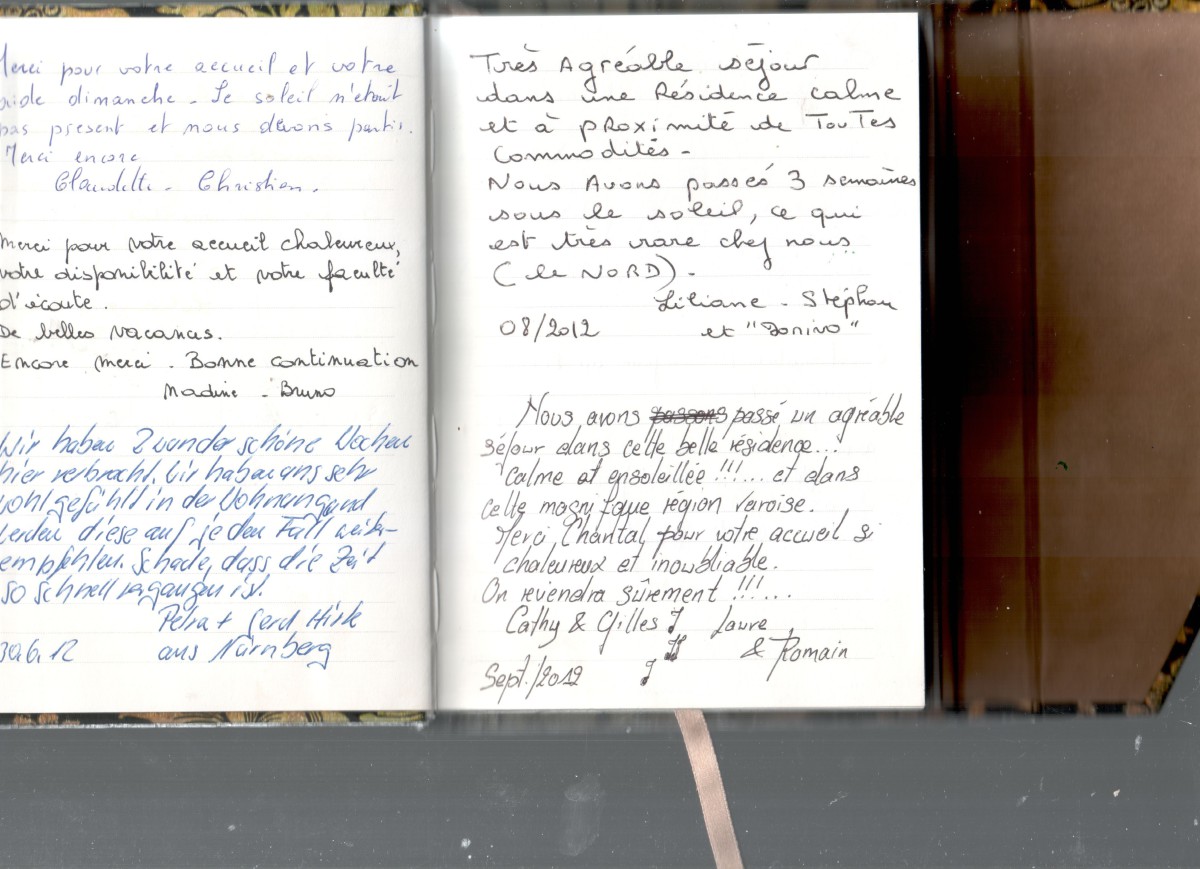 Merci pour votre accueil et votre
aide dimanche. Le soleil n'était
pas present et nous devons partir.
Merci encore
Claudette - Christian.
Merci pour votre accueil chaleureux,
votre disponibilité et votre faculté
d'écoute.
De belles vacances.
Encore merci. Bonne continuation
Nadine - Bruno
Wir haben 2 wunderschöne Wochen
hier verbracht. Wir haben uns sehr
wohl gefühlt in der Wohnung und
werden diese auf jeden Fall weiter-
empfehlen. Schade, dass die Zeit
so schnell vergangen ist.
Petra + Gerd
30.6.12 aus Nürnberg
Très Agréable séjour
dans une Résidence calme
et à proximité de TouTes
Commodités -
Nous Avons passés 3 semaines
sous le soleil, ce qui
est très rare chez nous
(le NORD).
Liliane - Stéphan
08/2012 et
Nous avons passé un agréable
séjour dans cette belle résidence...
Calme et ensoleillée !!!... et dans
cette magnifique région Varoise.
Merci Chantal pour votre accueil si
chaleureux et inoubliable.
On reviendra sûrement !!!...
Cathy & Gilles Laure
& Romain
Sept./2012